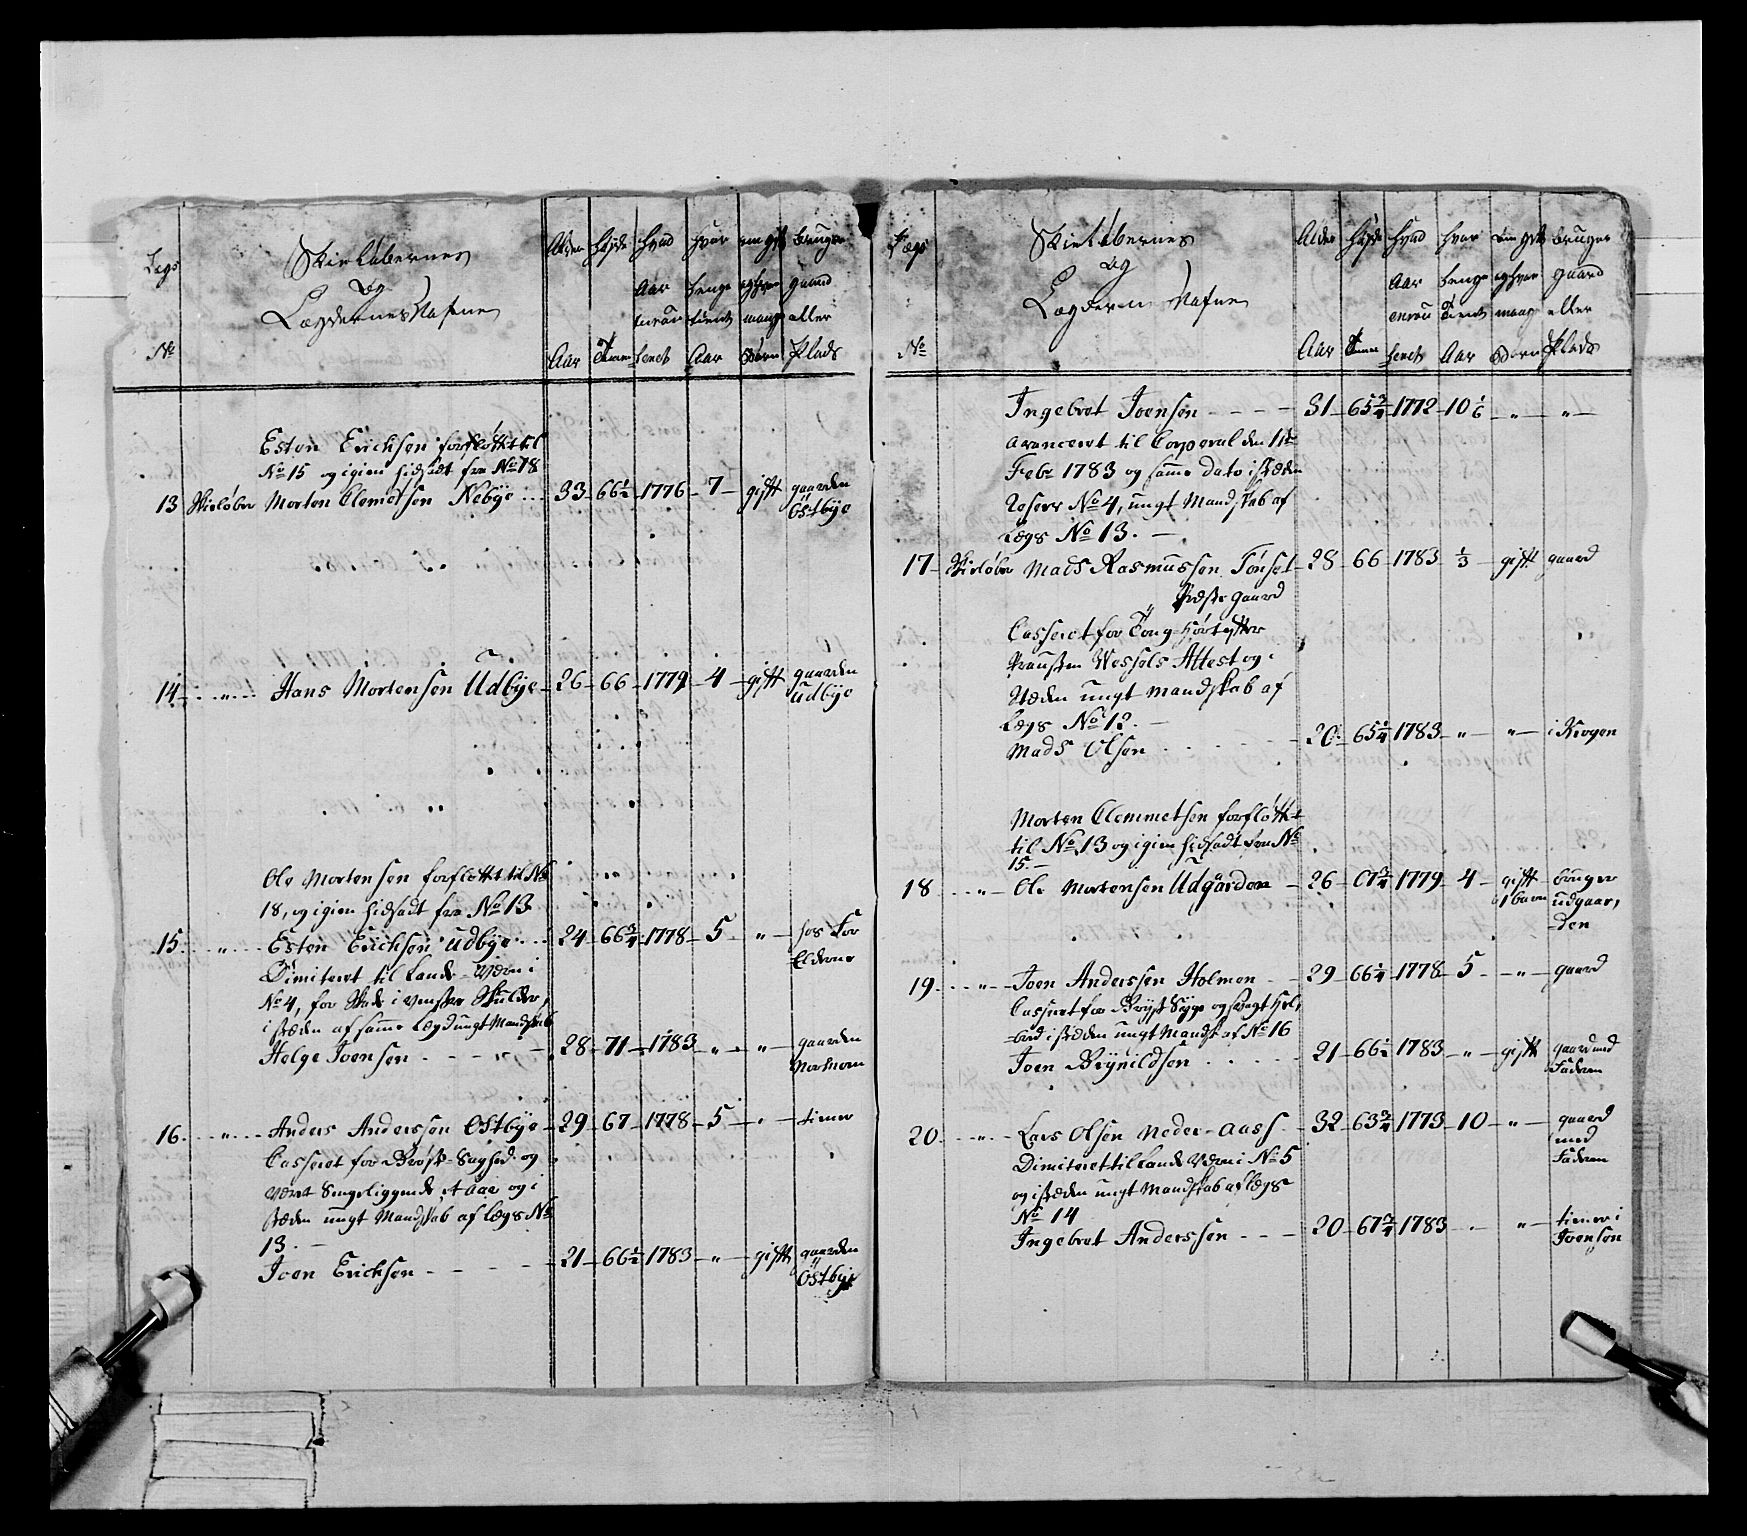 Legs
No
Skieløbernes
og
Lægdernes Nafne
Alder
Aar
Høyde
Tomer
Hvad
Aar
enroul
leret
Hvor
lenge
tient
Aar
om gift
og hvor
mange
Børn
bruger
gaard
eller
Plads
Esten Erichsen forfløttet til
No 15 og igien hidsadt fra No 18
13 Skieløber Morten Clemetsen Nebye 33 66½ 1776 7 gift gaarden
Østbye
14 " Hans Mortensen Udbye 26 66 1779 4 gift gaarden
Udbye
Ole Mortensen forfløttt til No
18, og igien hidsadt fra No 13
15 " Esten Erichsen Udbye 24 66¾ 1778 5 " hos For
Elderne
Dimiteret til Lande-Værn i
No 4, for Skade i venster Skulder,
i stæden af samme Lægd ungt Mandskab
Helge Joensen 28 71 1783 " " gaarden
16 " Anders Anderssen Østbye 29 67 1778 5 " tiener
Casseret for Bryst-Svaghed og
været Sengeliggende, et Aar og i
stæden ungt Mandskab af Lægs No
13.
Joen Erichsen 21 66½ 1783 " gift gaarden
Østbye
Lægs
No
Skieløbernes
og
Lægderne Nafne
Alder
Aar
Høyde
Tomer
Hvad
Aar
enrou
leret
Hvor
lenge
tient
Aar
om gift
og hvor
mange
Børn
bruger
gaard
eller
Plads
Ingebret Joensen 31 65¾ 1772 10 1/6 " "
avanceret til Corporal den 1te
Febr 1783 og samme dato i stæden
Reserv No 4, ungt Mandskab af
Lægs No 13.
17 Skieløber Mads Rasmussen Tønset 28 66 1783 1/3 gift gaard
Præste Gaard
Casseret for Tung-Hør efter
Prousten Wessels Attest og i
stæden ungt mandskab af
Lægs No 12.
Mads Olsen 20 65¼ 1783 " " i Krogen
Morten Clemmetsen forfløttt
til No 13 og igien hidsadt fra No
15.
18 " Ole Mortensen Udgården 26 67¾ 1779 4 gift bruger
1 barn udgaar,
den
19 " Joen Anderssen Holmen 29 66¼ 1778 5 " gaard
Casseret for Bryst Syge og svagt Hel,
bred i stæden ungt Mandsk af No 16
Joen Brynildsen 21 66½ 1783 " gift gaard med
Faderen
20 " Lars Olsen Neder-Aass 32 63¾ 1773 10 " gaard
med
Faderen
Dimiteret til Lande Værn i No 5
og i stæden ungt Mandskab af Lægs
No 14
Ingebret Anderssen 20 67¾ 1783 " " tiener i